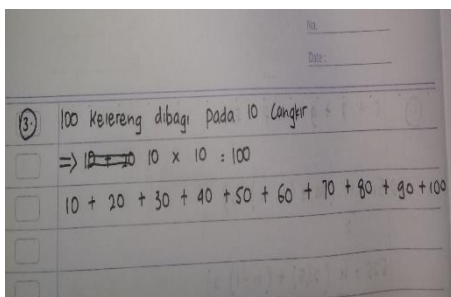 No.
Date:
3. 100 Kelereng dibagi pada 10 Cangkir
=> 10 x 10 = 100
10 + 20 + 30 + 40 + 50 + 60 + 70 + 80 + 90 + 100